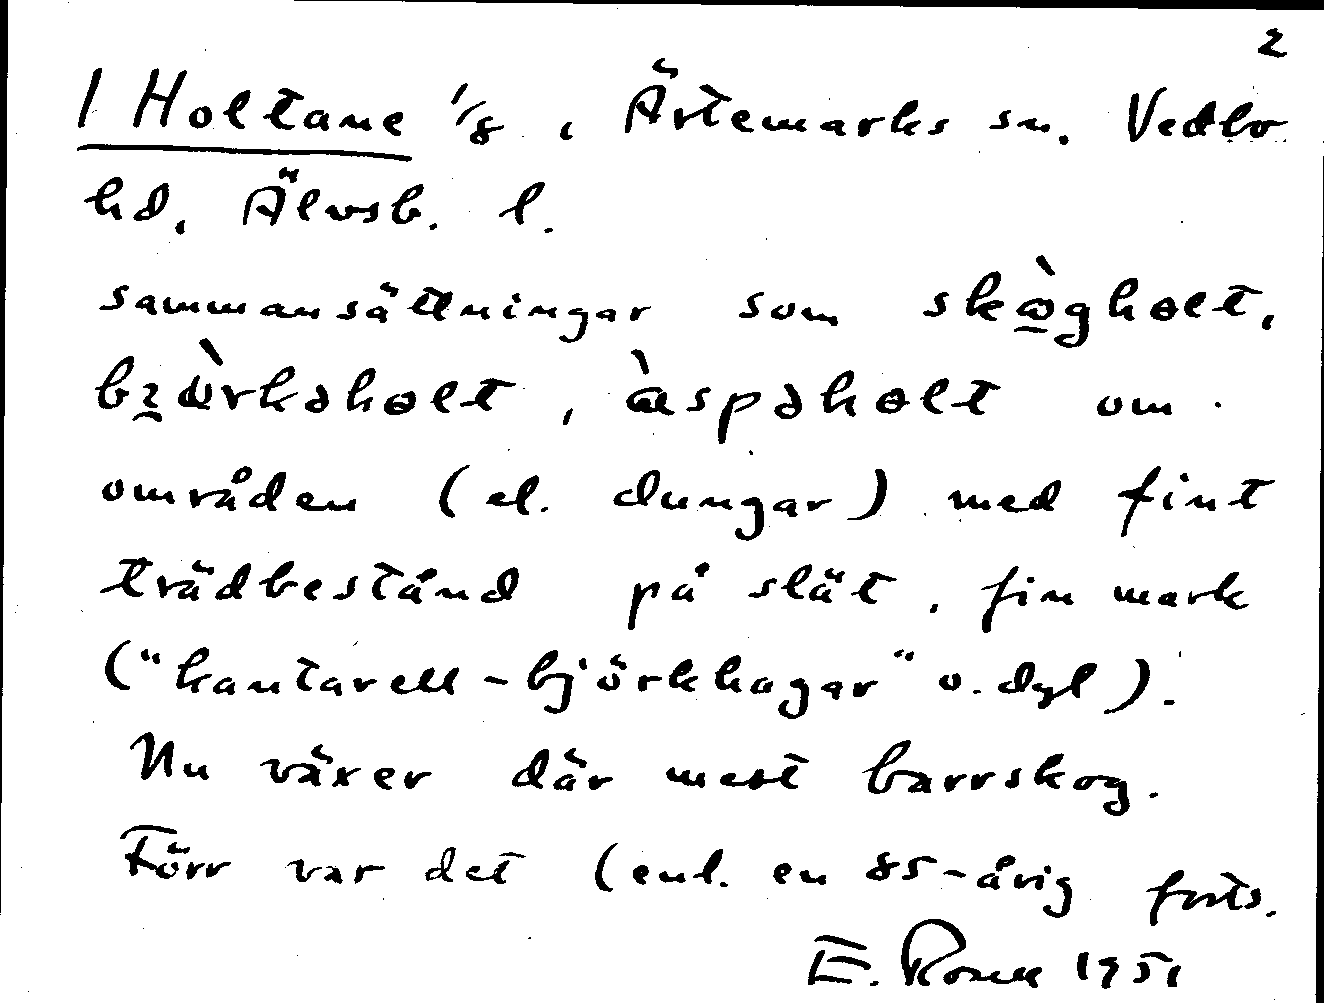 2
1 Holtane 1/8, Ärtemarks sn. Vedbo
hd, Älvsb. l.
sammansättningar som skògholt,
bɪ̯ærkəhɵlt, àspəhɵlt om
områden (el. dungar) med fint
trädbestånd på slät, fin mark
("kantarell-björkhagar" o. dyl).
Nu växer där mest barrskog.
Förr var det (enl. en 85-årig forts.
E. Rosell 1951